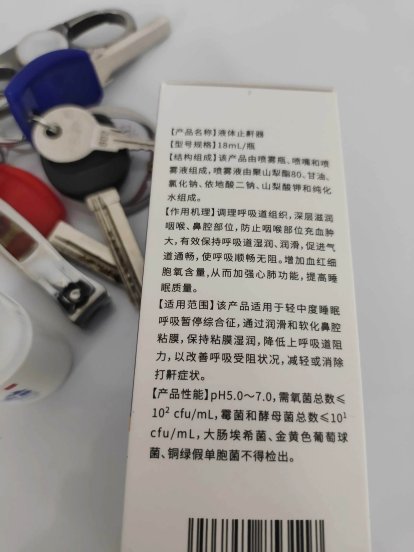 【产品名称】液体止鼾器
【型号规格】18mL/瓶
【结构组成】该产品由喷雾瓶、喷嘴和喷
雾液组成，喷雾液由聚山梨酯80、甘油、
氯化钠、依地酸二钠、山梨酸钾和纯化
水组成。
【作用机理】调理呼吸道组织，深层滋润
咽喉、鼻腔部位，防止咽喉部位充血肿
大，有效保持呼吸道湿润、润滑，促进气
道通畅，使呼吸顺畅无阻，增加血红细
胞氧含量，从而加强心肺功能，提高睡
眠质量。
【适用范围】该产品适用于轻中度睡眠
呼吸暂停综合征，通过润滑和软化鼻腔
粘膜，保持粘膜湿润，降低上呼吸道阻
力，以改善呼吸受阻状况，减轻或消除
打鼾症状。
【产品性能】pH5.0～7.0，需氧菌总数≤
10² cfu/mL，霉菌和酵母菌总数≤10¹
cfu/mL，大肠埃希菌、金黄色葡萄球
菌、铜绿假单胞菌不得检出。